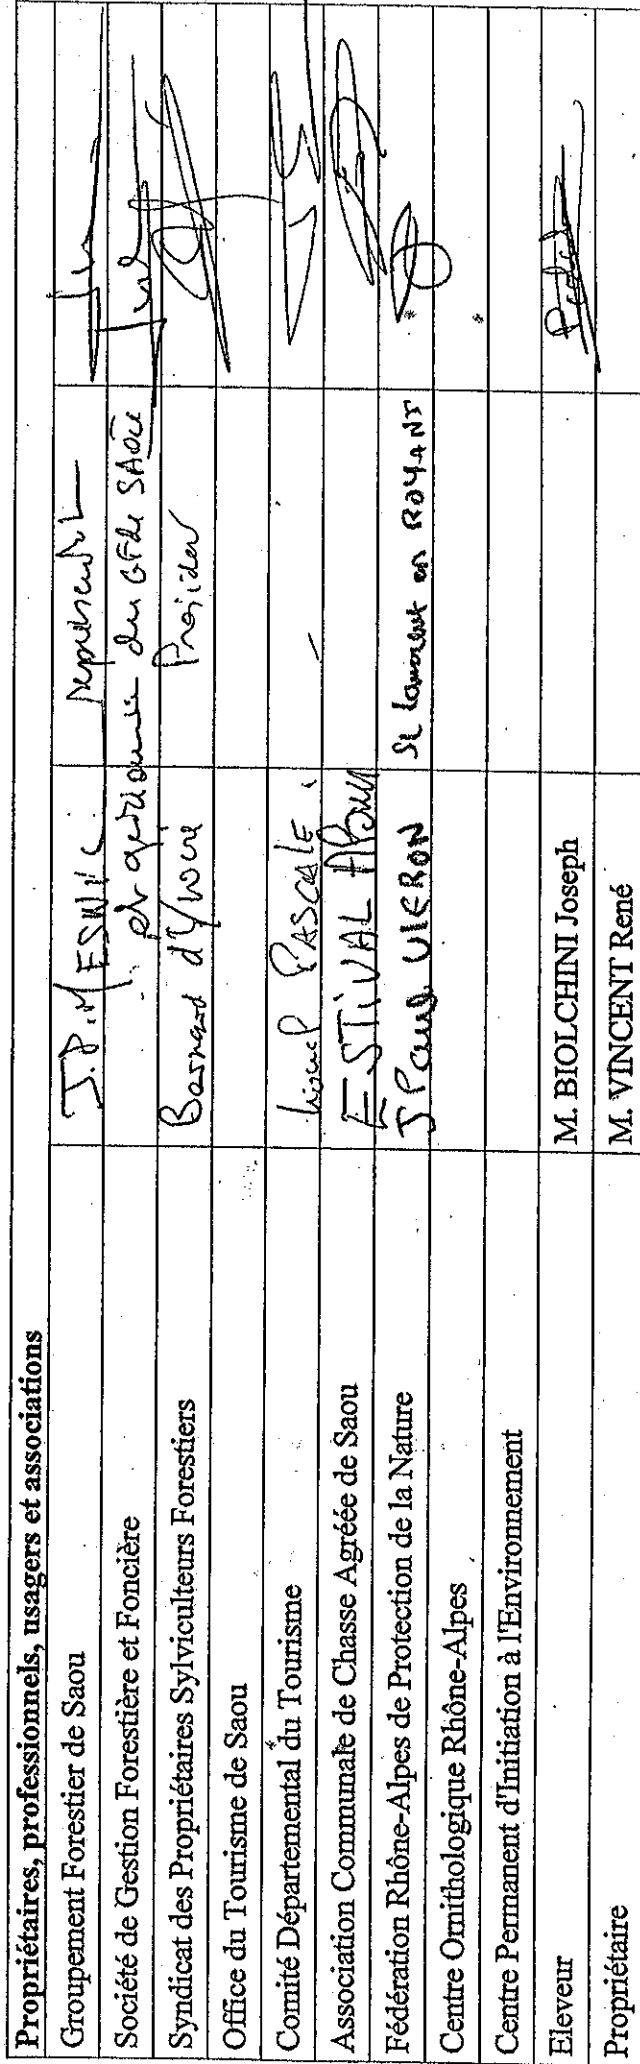 Propriétaires, professionnels, usagers et associations
Groupement Forestier de Saou J.P. MESNIL représentant
Société de Gestion Forestière et Foncière et gestionnaire du GF de SAOU
Syndicat des Propriétaires Sylviculteurs Forestiers Bernard d'Yvoire
Office du Tourisme de Saou
Comité Départemental du Tourisme PASCALE
Association Communale de Chasse Agréée de Saou ESTIVAL
Fédération Rhône-Alpes de Protection de la Nature J Paul VIERON St Laurent en ROYANS
Centre Ornithologique Rhône-Alpes
Centre Permanent d'Initiation à l'Environnement
Eleveur M. BIOLCHINI Joseph
Propriétaire M. VINCENT René